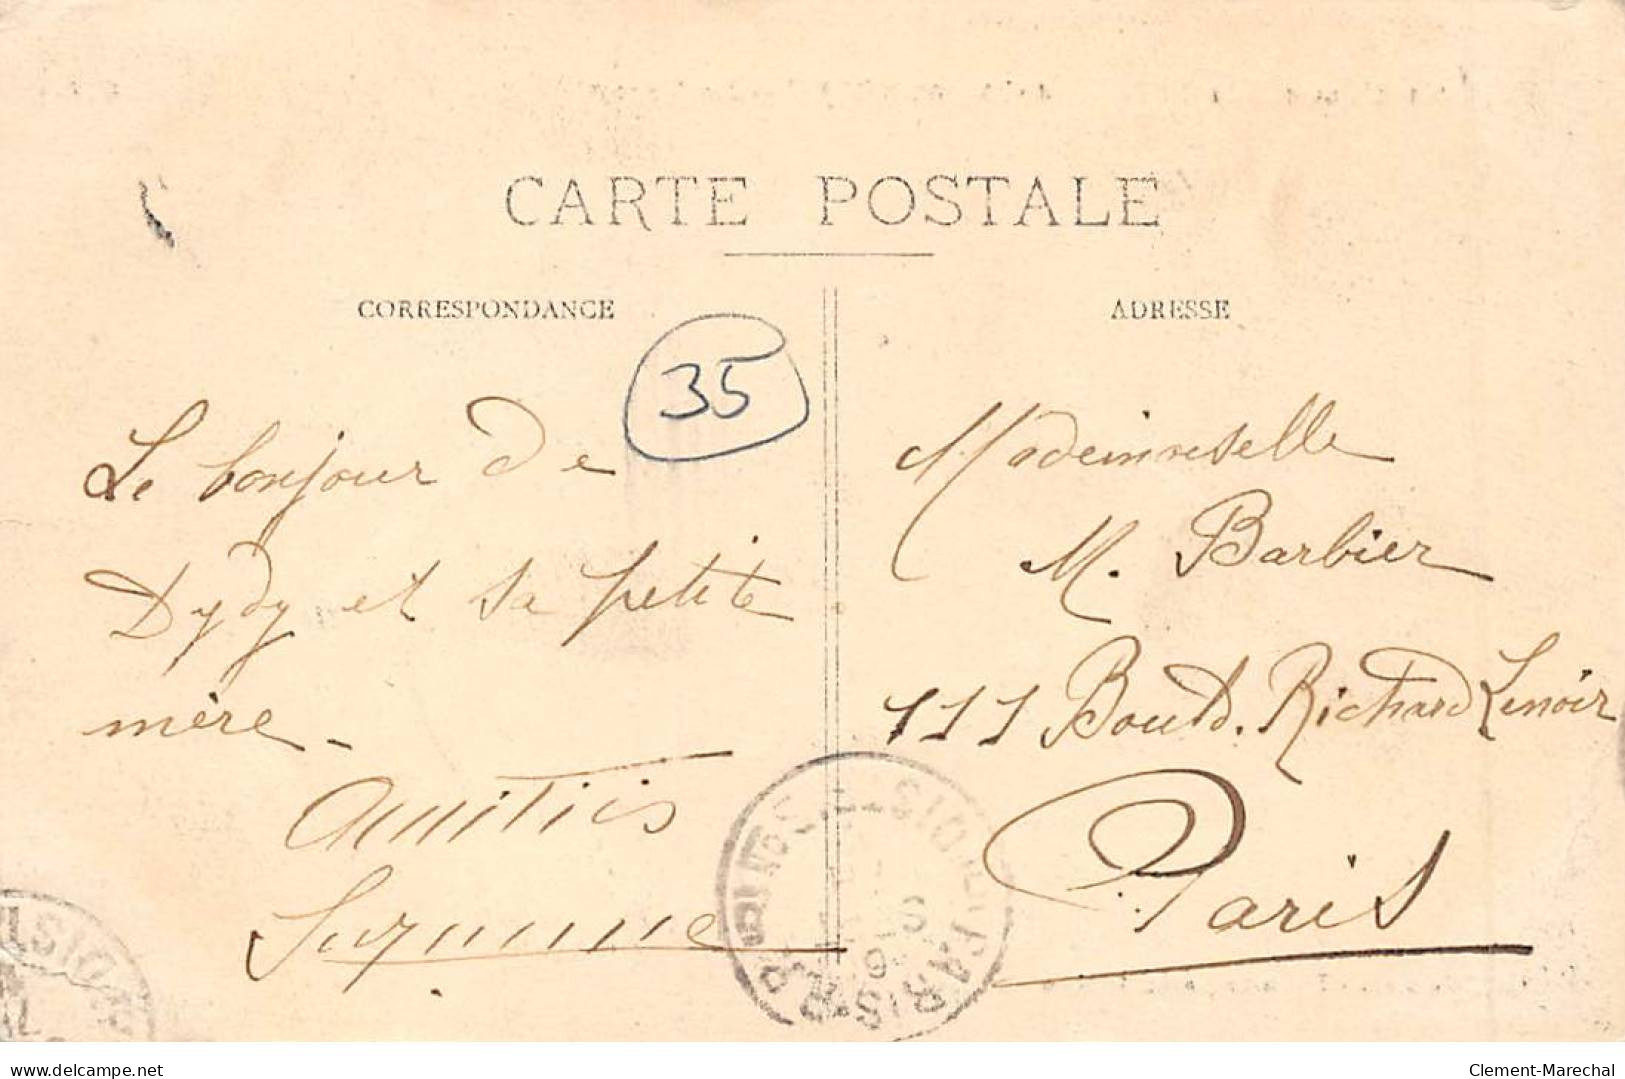 CARTE POSTALE
CORRESPONDANCE
ADRESSE
35
Le bonjour de
Dydy et sa petite
mère.
Amitiés
Suzanne
Mademoiselle
M. Barbier
111 Bould. Richard Lenoir
Paris
PARIS
delcampe.net
Clement-Marechal